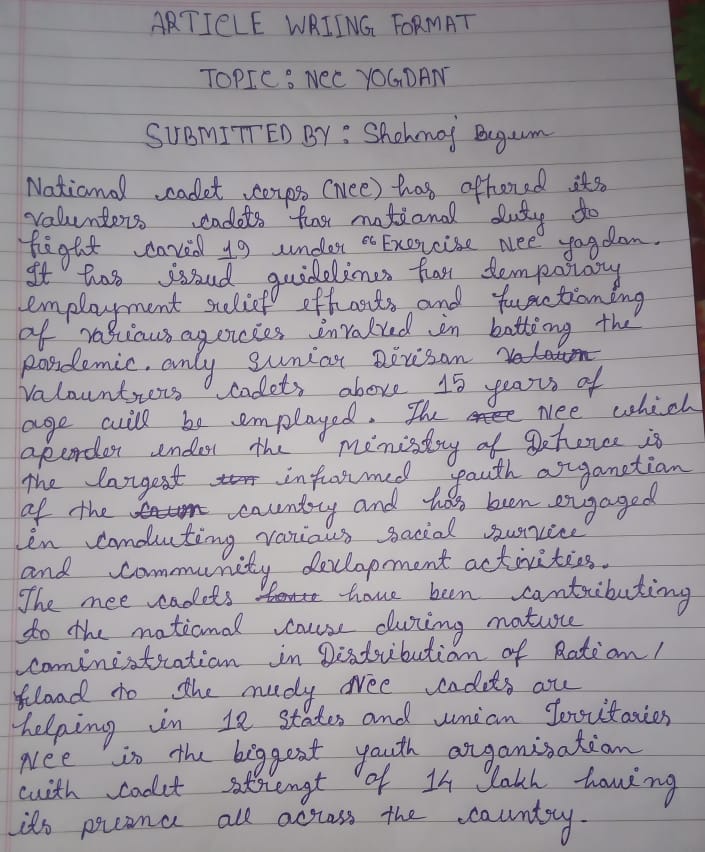 ARTICLE WRIING FORMAT
TOPIC: NCC YOGDAN
SUBMITTED BY: Shehnaj Begum
National cadet corps (NCC) has offered its
valunters cadets for national duty to
fight covid 19 under "Exercise NCC yogdan.
It has issud guidelines for temparary
employment relief efforts and functioning
of various agercies involved in batting the
pardemic. only suniar Divison
Valauntrers cadets above 15 years of
age will be employed. The NCC which
aperder ender the Ministry of Defence is
the largest informed youth organetion
of the country and has been engaged
in conducting various social survice
and community devlapment activities.
The ncc cadets have been contributing
to the national cause during nature
cominístration in Distribution of Ration/
flood to the needy NCC cadets are
helping in 12 States and union Territories
NCC is the biggest youth organisation
with cadet strengt of 14 lakh having
its presnce all across the country.